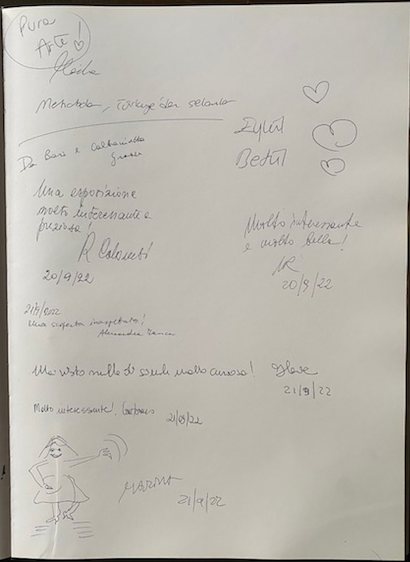 Pura
Arte!
Merhabalar, Türkiye'den selamlar
Eylül
Betül
Da Bari e Caltanissetta
Grazie
Una esposizione
molto interessante e
preziosa!
R Colombi
20/9/22
Molto interessante
e molto bella!
MR
20/9/22
21/9/2022
Una scoperta inaspettata!
Alessandra
Mai visto nulla di simile molto curioso!
21/9/22
Molto interessante!
21/09/22
MARINA
21/9/22